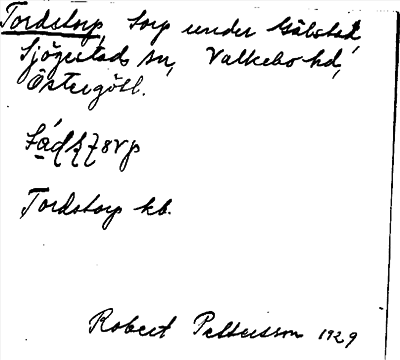 Tordstorp, torp under Gälstad,
Sjögestad sn, Valkebo hd,
Östergötl.
Tordstorp kb.
Robert Pettersson 1929